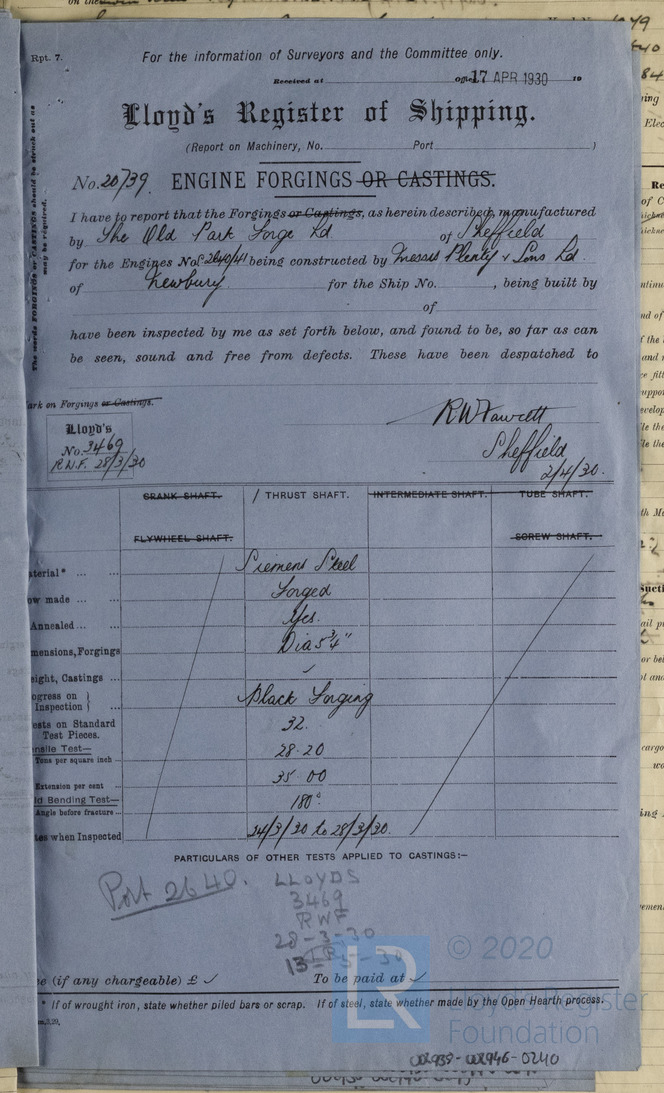 Rpt. 7.
For the information of Surveyors and the Committee only.
Received at Office 17 APR 1930 19
Lloyd's Register of Shipping.
(Report on Machinery, No. Port )
No. 20739. ENGINE FORGINGS OR CASTINGS.
The words FORGINGS or CASTINGS should be struck out as may be required.
I have to report that the Forgings or Castings, as herein described, manufactured
by The Old Park Forge Ld of Sheffield
for the Engines Nos. 2640/41 being constructed by Messrs Plenty & Sons Ld.
of Newbury for the Ship No. , being built by
of
have been inspected by me as set forth below, and found to be, so far as can
be seen, sound and free from defects. These have been despatched to
ark on Forgings or Castings.
Lloyd's
No. 3469
R.W.F. 28/3/30
RW Fawcett
Sheffield
2/4/30.
CRANK SHAFT. / THRUST SHAFT. INTERMEDIATE SHAFT. TUBE SHAFT.
FLYWHEEL SHAFT. SCREW SHAFT.
aterial* ... ... Siemens Steel
ow made ... ... Forged
Annealed ... ... Yes.
mensions, Forgings Dia 5 3/4"
eight, Castings ... ✓
ogress on } Inspection } ... Black Forging
ests on Standard Test Pieces. 32.
nsile Test—
Tons per square inch ... 28.20
Extension per cent ... 35.00
ld Bending Test—
Angle before fracture ... 180°
tes when Inspected 24/3/30 to 28/3/30.
PARTICULARS OF OTHER TESTS APPLIED TO CASTINGS:—
Port 2640.
LLOYDS
3469
RWF
28-3-30
13-5-30
e (if any chargeable) £ ✓ To be paid at ✓
* If of wrought iron, state whether piled bars or scrap. If of steel, state whether made by the Open Hearth process.
m,3,29.
LR
© 2020
Lloyd's Register
Foundation
002939-002946-0240